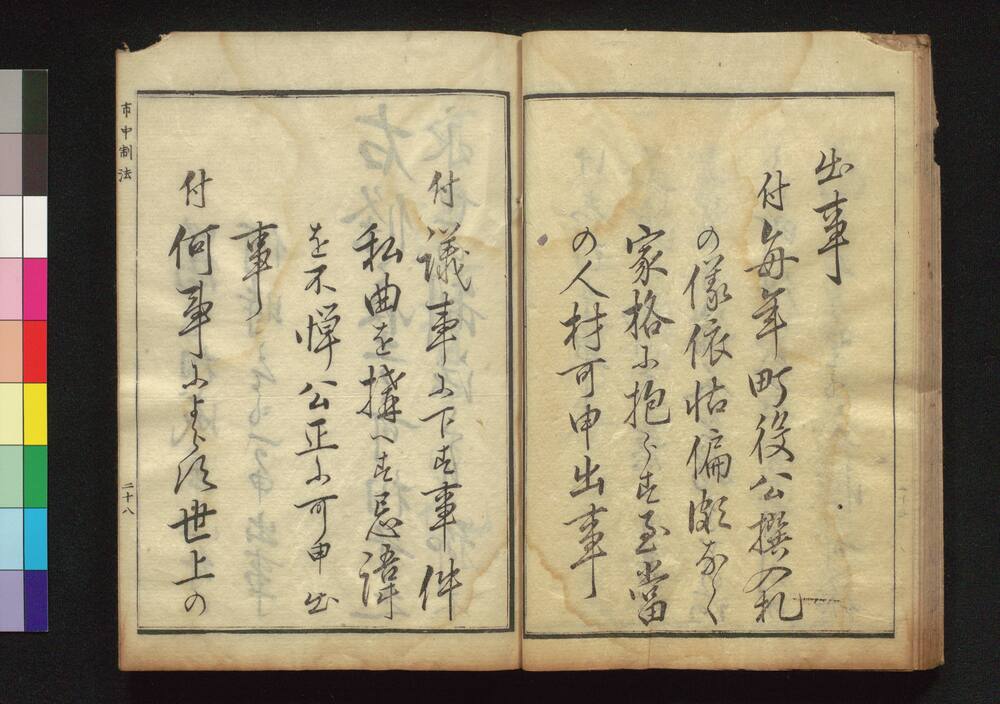 出事
付毎年町役公撰入札
の儀依怙偏頗なく
家格に抱らす至當
の人材可申出事
付議事に下す事件
私曲を搆へす忌諱
を不憚公正に可申出
事
付何事によらす世上の
市中制法
二十八